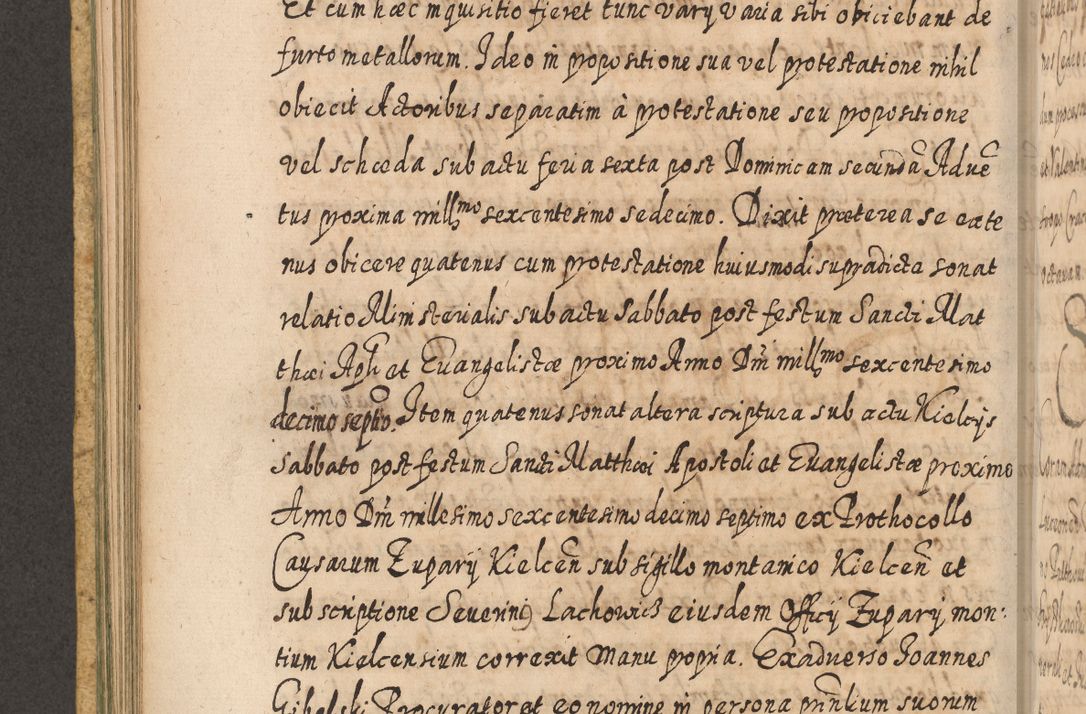 Et cum hæc inquisitio fieret tunc varÿ varia sibi obiiciebant de
furto metallorum. Ideo in propositione sua vel protestatione nihil
obiecit Actoribus separatim à protestatione seu propositione
vel scheda sub actu feria sexta post Dominicam secundã Aduẽ
tus proxima mill̃mo sexcentesimo sedecimo. Dixit præterea se eate
nus obicere quatenus cum protestatione huiusmodi supradicta sonat
relatio Ministerialis sub actu Sabbato post festum Sancti Mat
thæi Apl̃i et Euangelistæ proximo Anno Dñi mill̃mo sexcentesimo
decimo septĩo. Item quatenus sonat altera scriptura sub actu Kielcÿs
Sabbato post festum Sancti Matthæi Apostoli et Euangelistæ proximo
Anno Dñi millesimo sexcentesimo decimo septimo ex Prothocollo
Causarum Zuparÿ Kielceñ sub sigillo montanico Kielceñ et
subscriptione Severini Lachowicz eiusdem Officÿ Zuparÿ mon:
tium Kielcensium correxit manu propria. Exaduerso Joannes
Gibelski Procurator et eo nomine in persona prinñlium suorum